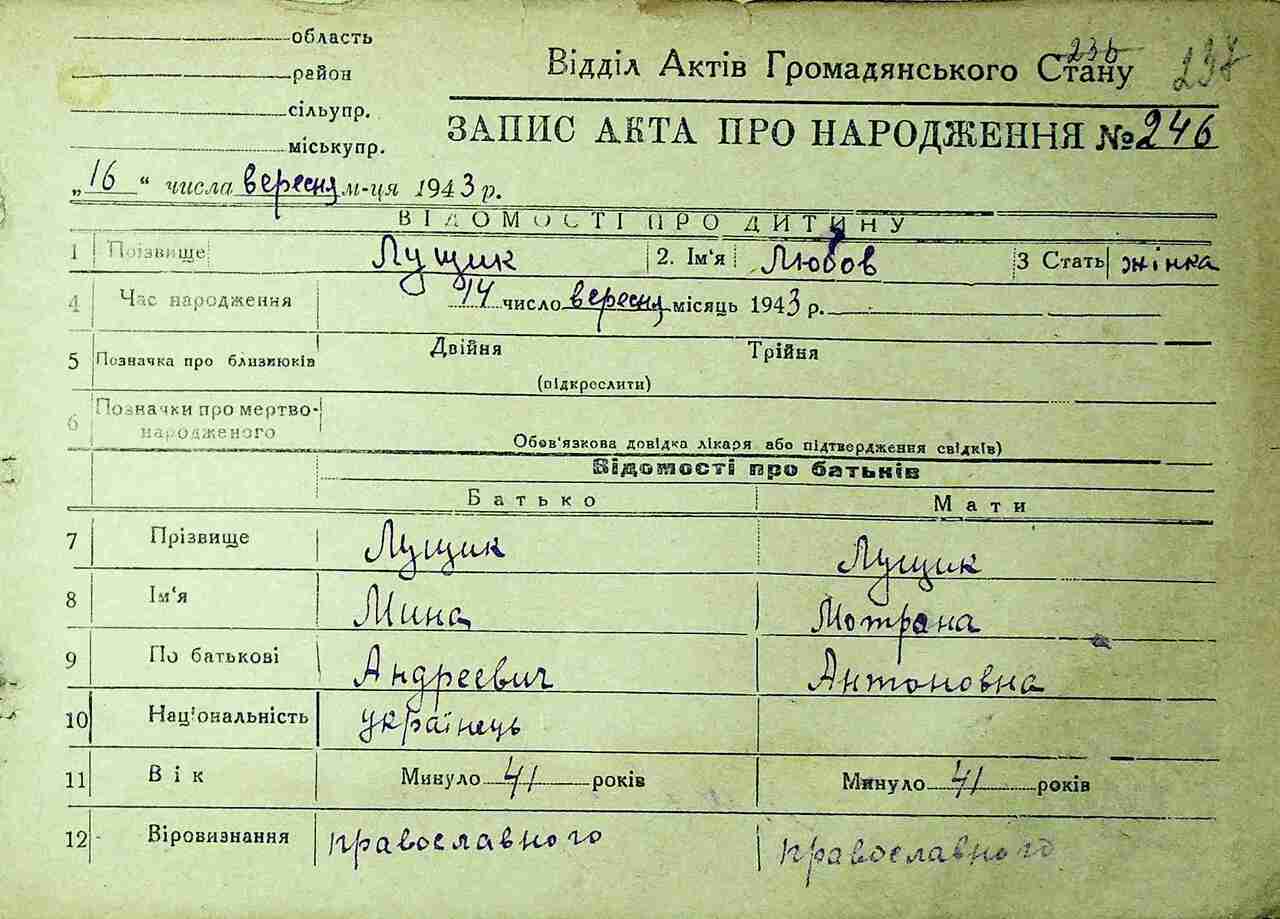 область
район
сільупр.
міськупр.
Відділ Актів Громадянського Стану
236 237
ЗАПИС АКТА ПРО НАРОДЖЕННЯ №246
„16“ числа вересня м-ця 1943 р.
ВІДОМОСТІ ПРО ДИТИНУ
1 Прізвище Лущик 2. Ім'я Любов 3 Стать жінка
4 Час народження 14 число вересня місяць 1943 р.
5 Позначка про близнюків Двійня Трійня
(підкреслити)
6 Позначки про мертво-
народженого
Обов'язкова довідка лікаря або підтвердження свідків)
Відомості про батьків
Батько Мати
7 Прізвище Лущик Лущик
8 Ім'я Мина Мотрана
9 По батькові Андреевич Антоновна
10 Національність українець
11 Вік Минуло 41 років Минуло 41 років
12 Віровизнання православного православного